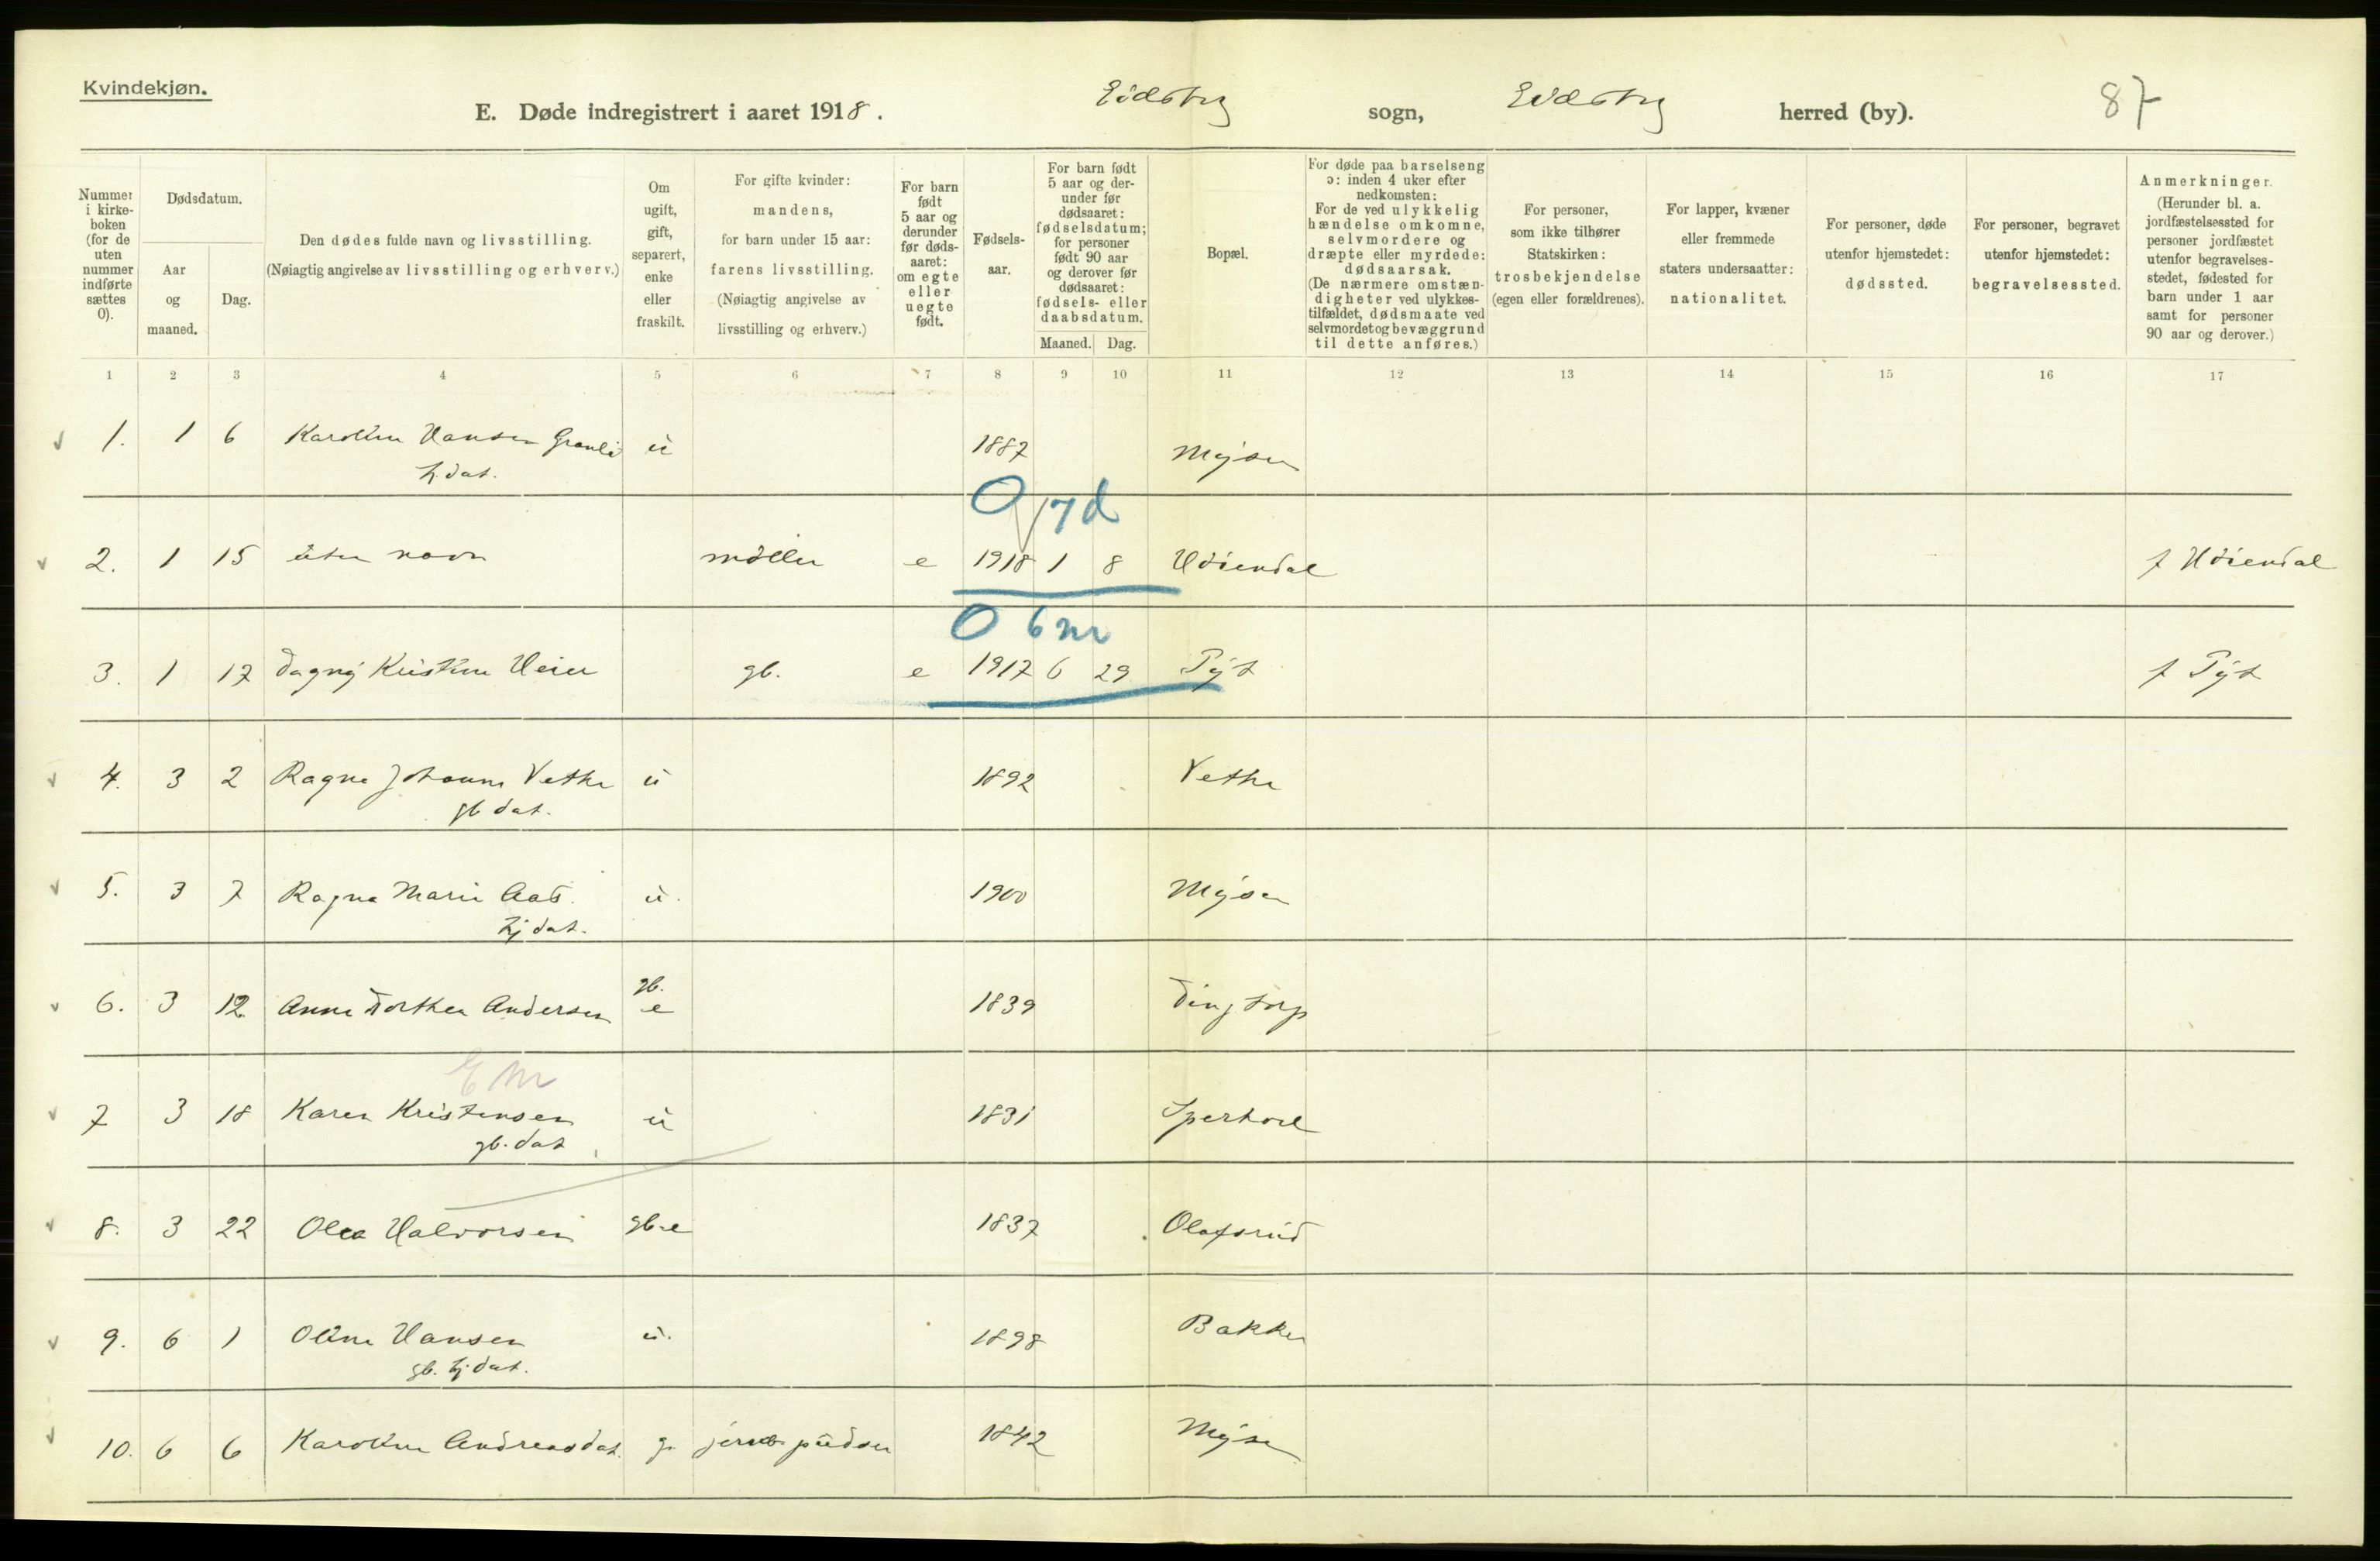 Kvindekjøn.
E. Døde indregistrert i aaret 1918. Eidsberg sogn, Eidsberg herred (by). 87
Nummer i kirke-
boken
(for de
uten
nummer
indførte
sættes
0).
Dødsdatum.
Aar
og
maaned.
Dag.
Den dødes fulde navn og livsstilling.
(Nøiagtig angivelse av livsstilling og erhverv.)
Om
ugift,
gift,
separert,
enke
eller
fraskilt.
For gifte kvinder:
mandens,
for barn under 15 aar:
farens livsstilling.
(Nøiagtig angivelse av
livsstilling og erhverv.)
For barn
født
5 aar og
derunder
før døds-
aaret:
om egte
eller
uegte
født.
Fødsels-
aar.
For barn født
5 aar og der-
under før
dødsaaret:
fødselsdatum;
for personer
født 90 aar
og derover før
dødsaaret:
fødsels- eller
daabsdatum.
Maaned. Dag.
Bopæl.
For døde paa barselseng
ɔ: inden 4 uker efter
nedkomsten:
For de ved ulykkelig
hændelse omkomne,
selvmordere og
dræpte eller myrdede:
dødsaarsak.
(De nærmere omstæn-
digheter ved ulykkes-
tilfældet, dødsmaate ved
selvmordet og bevæggrund
til dette anføres.)
For personer,
som ikke tilhører
Statskirken:
trosbekjendelse
(egen eller forældrenes).
For lapper, kvæner
eller fremmede
staters undersaatter:
nationalitet.
For personer, døde
utenfor hjemstedet:
dødssted.
For personer, begravet
utenfor hjemstedet:
begravelsessted.
Anmerkninger.
(Herunder bl. a.
jordfæstelsessted for
personer jordfæstet
utenfor begravelses-
stedet, fødested for
barn under 1 aar
samt for personer
90 aar og derover.)
1 2 3 4 5 6 7 8 9 10 11 12 13 14 15 16 17
1. 1 6 Karoline Hansen Granli u 1887 Mysen
0 7d
2. 1 15 uten navn møller e 1918 1 8 Høiendal f Høiendal
0 6m
3. 1 17 Dagny Kristine Heier gb. e 1917 6 29 Tyt f Tyt
4. 3 2 Ragna Johanne Vethe u 1892 Vethe
gb dat.
5. 3 7 Ragna Marie Aas u. 1900 Mysen
tj dat.
6. 3 12 Anne Dorthea Andersen gb. e 1839 Dingtorp
Em
7 3 18 Karen Kristensen u 1831
gb. dat
8. 3 22 Olea Halvorsen gb. e 1837 Olafsrud
9. 6 1 Oline Hansen u. 1898 Bakke
gb. tj. dat.
10. 6 6 Karoline Andreasdat. g. jernb pudser 1842 Mysen